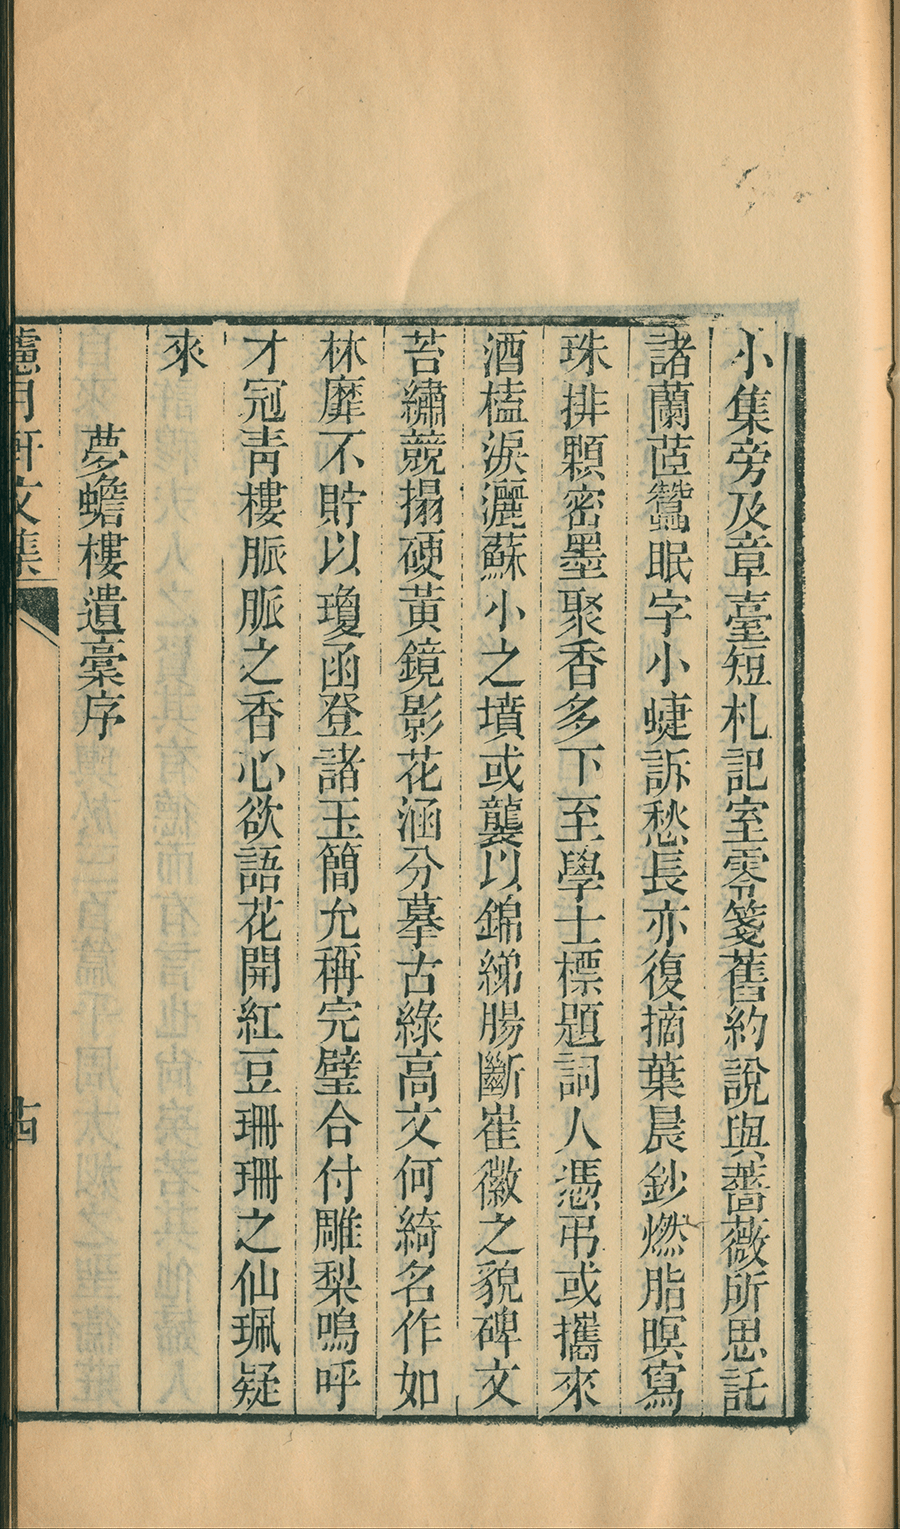 小集旁及章臺短札記室零箋舊約說與薔薇所思託
諸蘭茝鶯眠字小蜨訴愁長亦復摘葉晨鈔燃脂暝寫
珠排顆密墨聚香多下至學士標題詞人憑弔或攜來
酒榼淚灑蘇小之墳或襲以錦綈腸斷崔徽之貌碑文
苔繡競搨硬黃鏡影花涵分摹古綠高文何綺名作如
林靡不貯以瓊函登諸玉簡允稱完璧合付雕梨嗚呼
才冠青樓脈脈之香心欲語花開紅豆珊珊之仙珮疑
來
夢蟾樓遺稾序
月軒文集